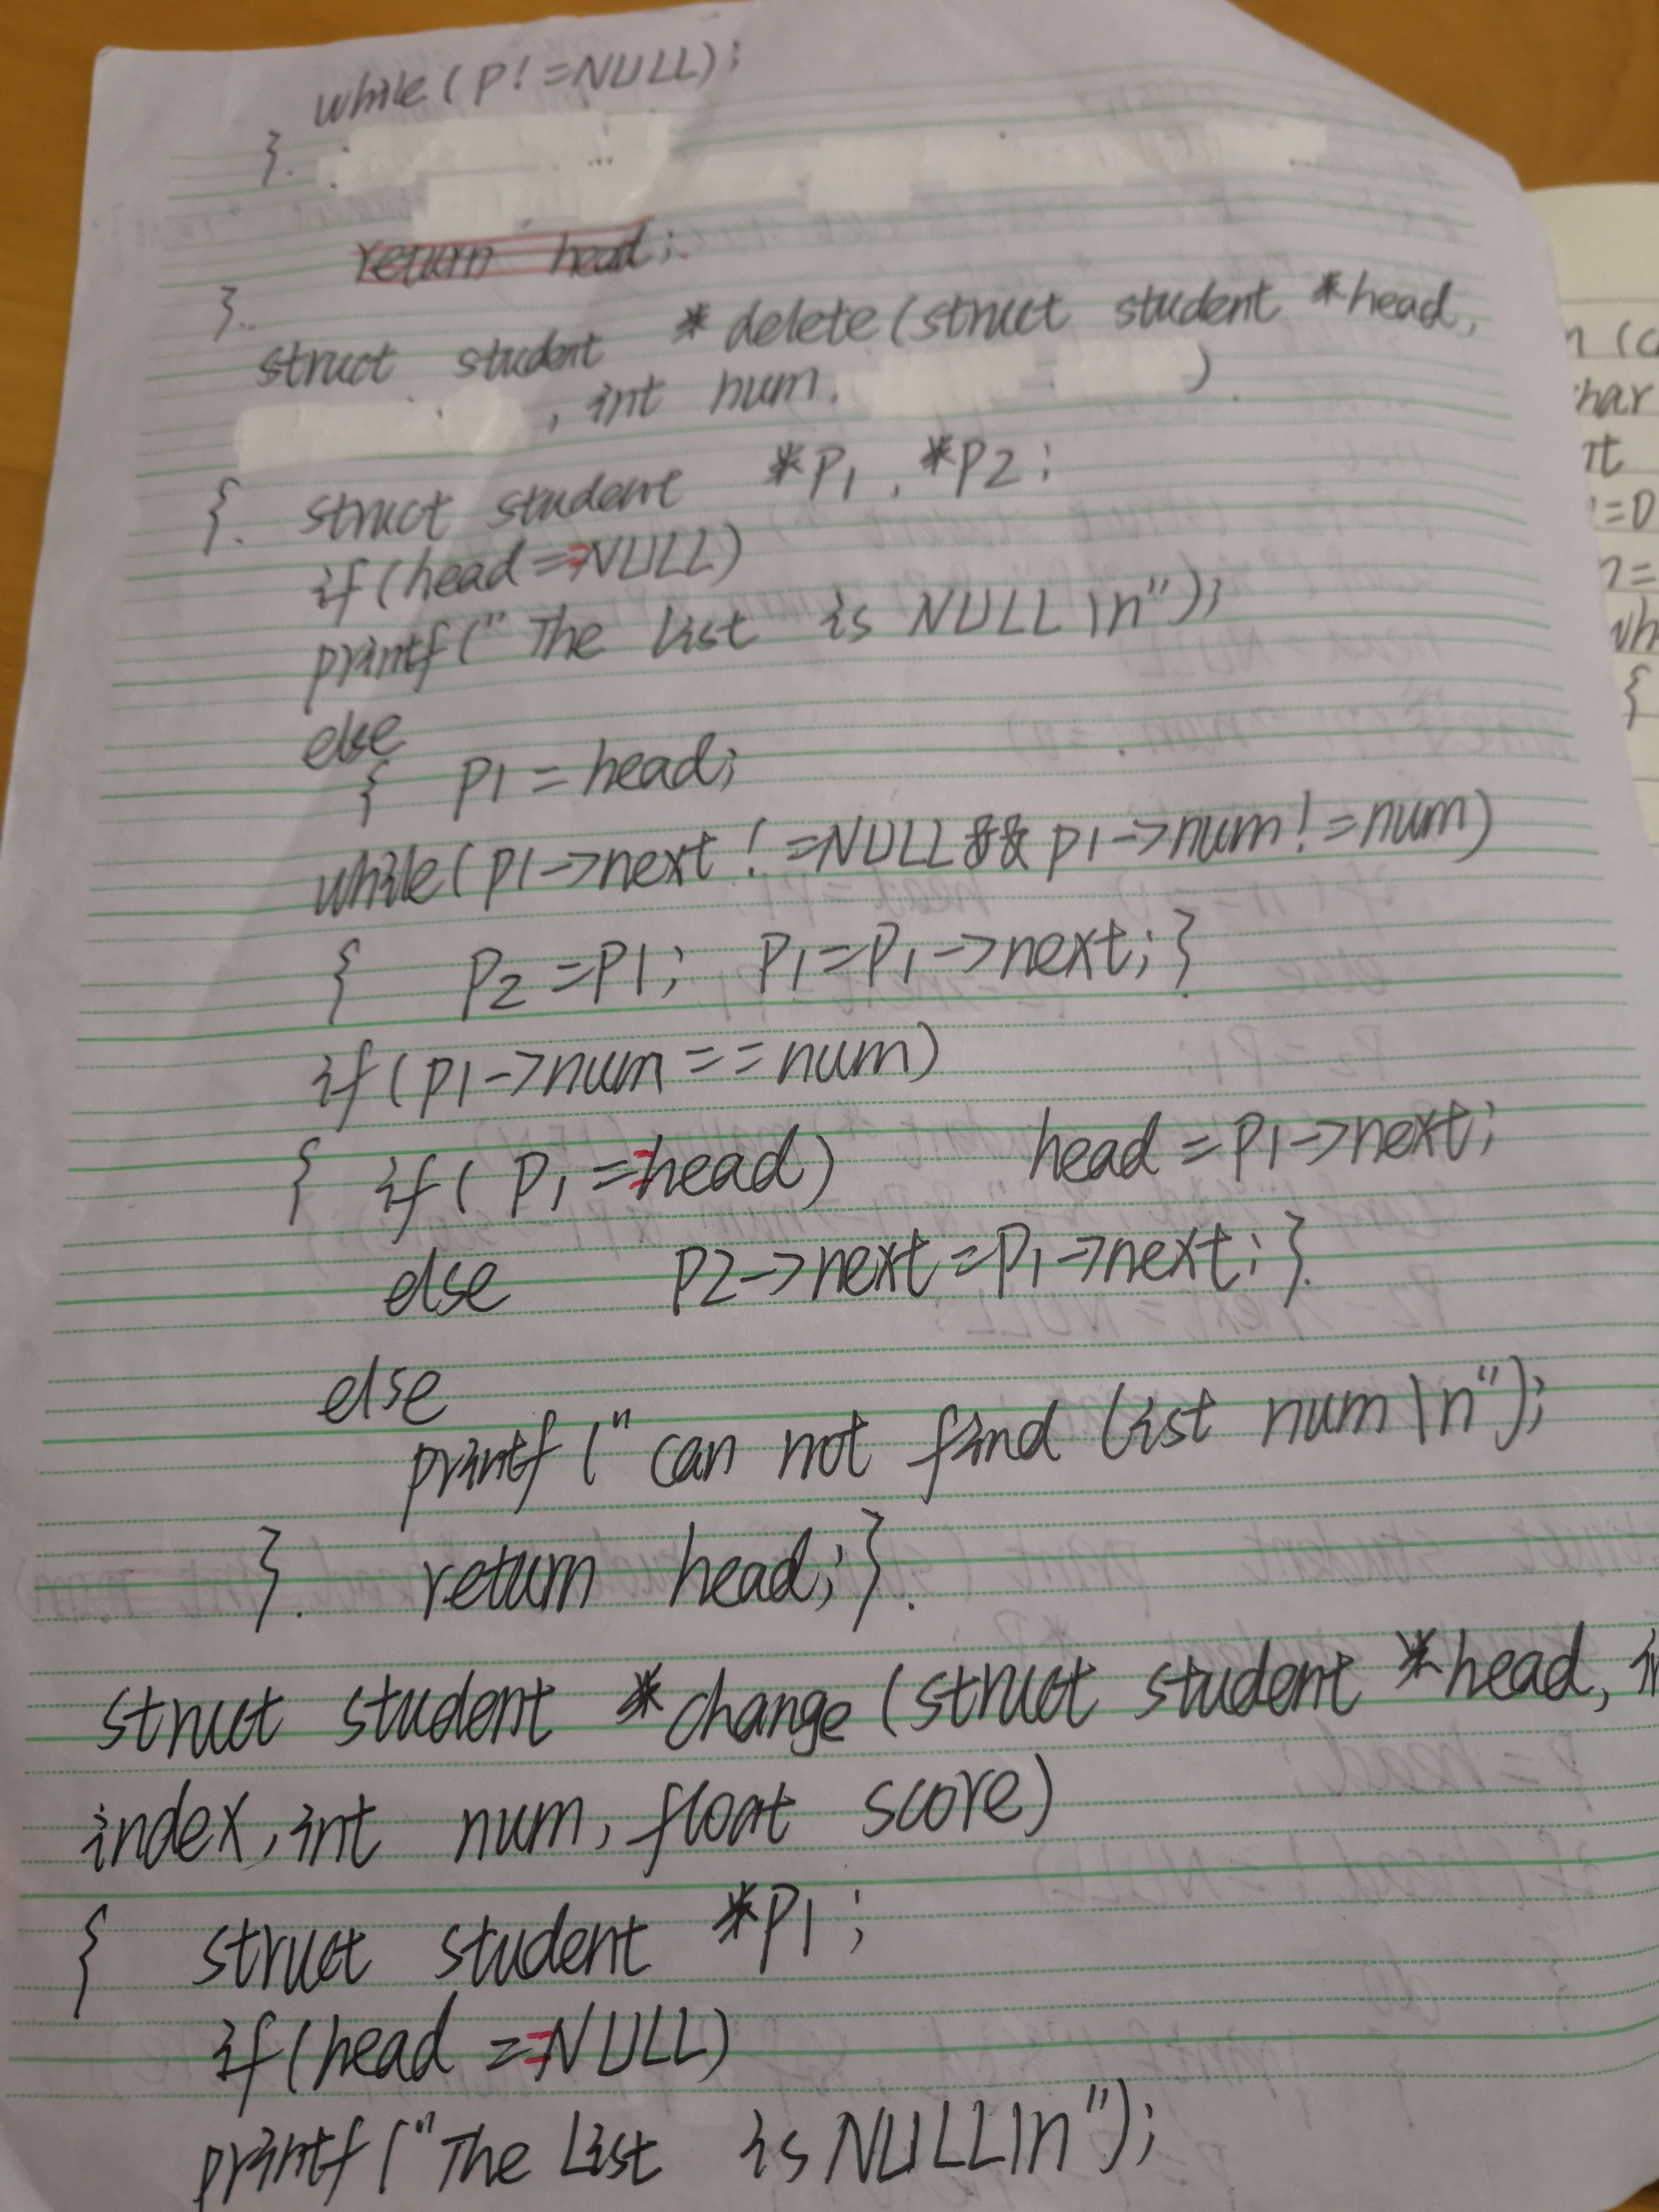 while(p!=NULL);
}.
return head;
}.
struct student *delete(struct student *head,
, int num, )
{. struct student *p1, *p2;
if(head==NULL)
printf("The list is NULL\n");
else
{ p1=head;
while(p1->next!=NULL&&p1->num!=num)
{ p2=p1; p1=p1->next;}
if(p1->num==num)
{ if(p1==head) head=p1->next;
else p2->next=p1->next;}
else
printf("can not find list num\n");
}. return head;}.
struct student *change(struct student *head, in
index, int num, float score)
{ struct student *p1;
if(head==NULL)
printf("The List is NULL\n");
n (c
har
nt
=0
n=
wh
{